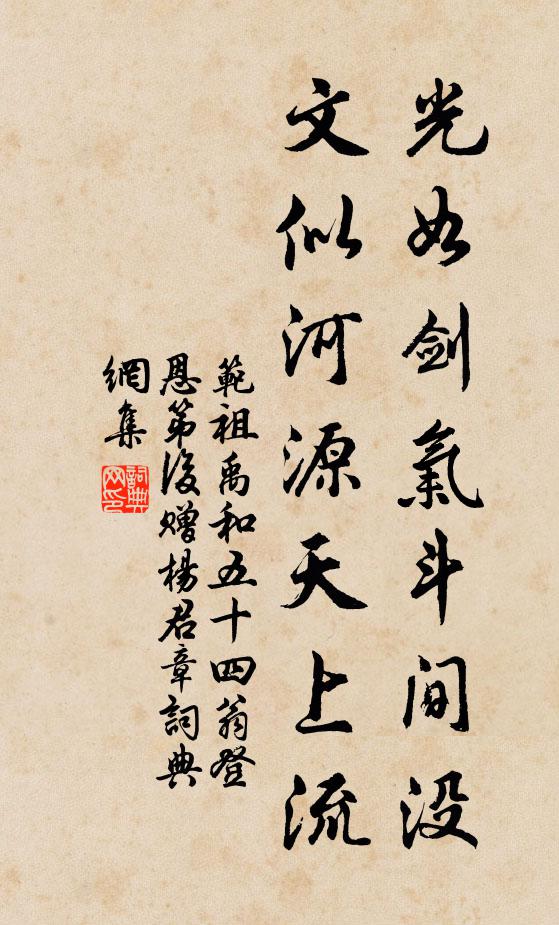 光如剑氣斗间没
文似河源天上流
範祖禹和五十四翁登
恩第後赠楊君章詞典
網集
詞典
网印